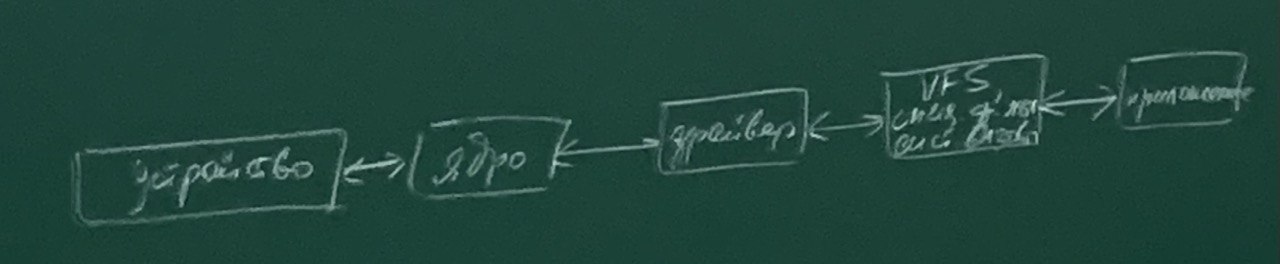 устройство
ядро
драйвер
VFS
спец ф-лы
приложение